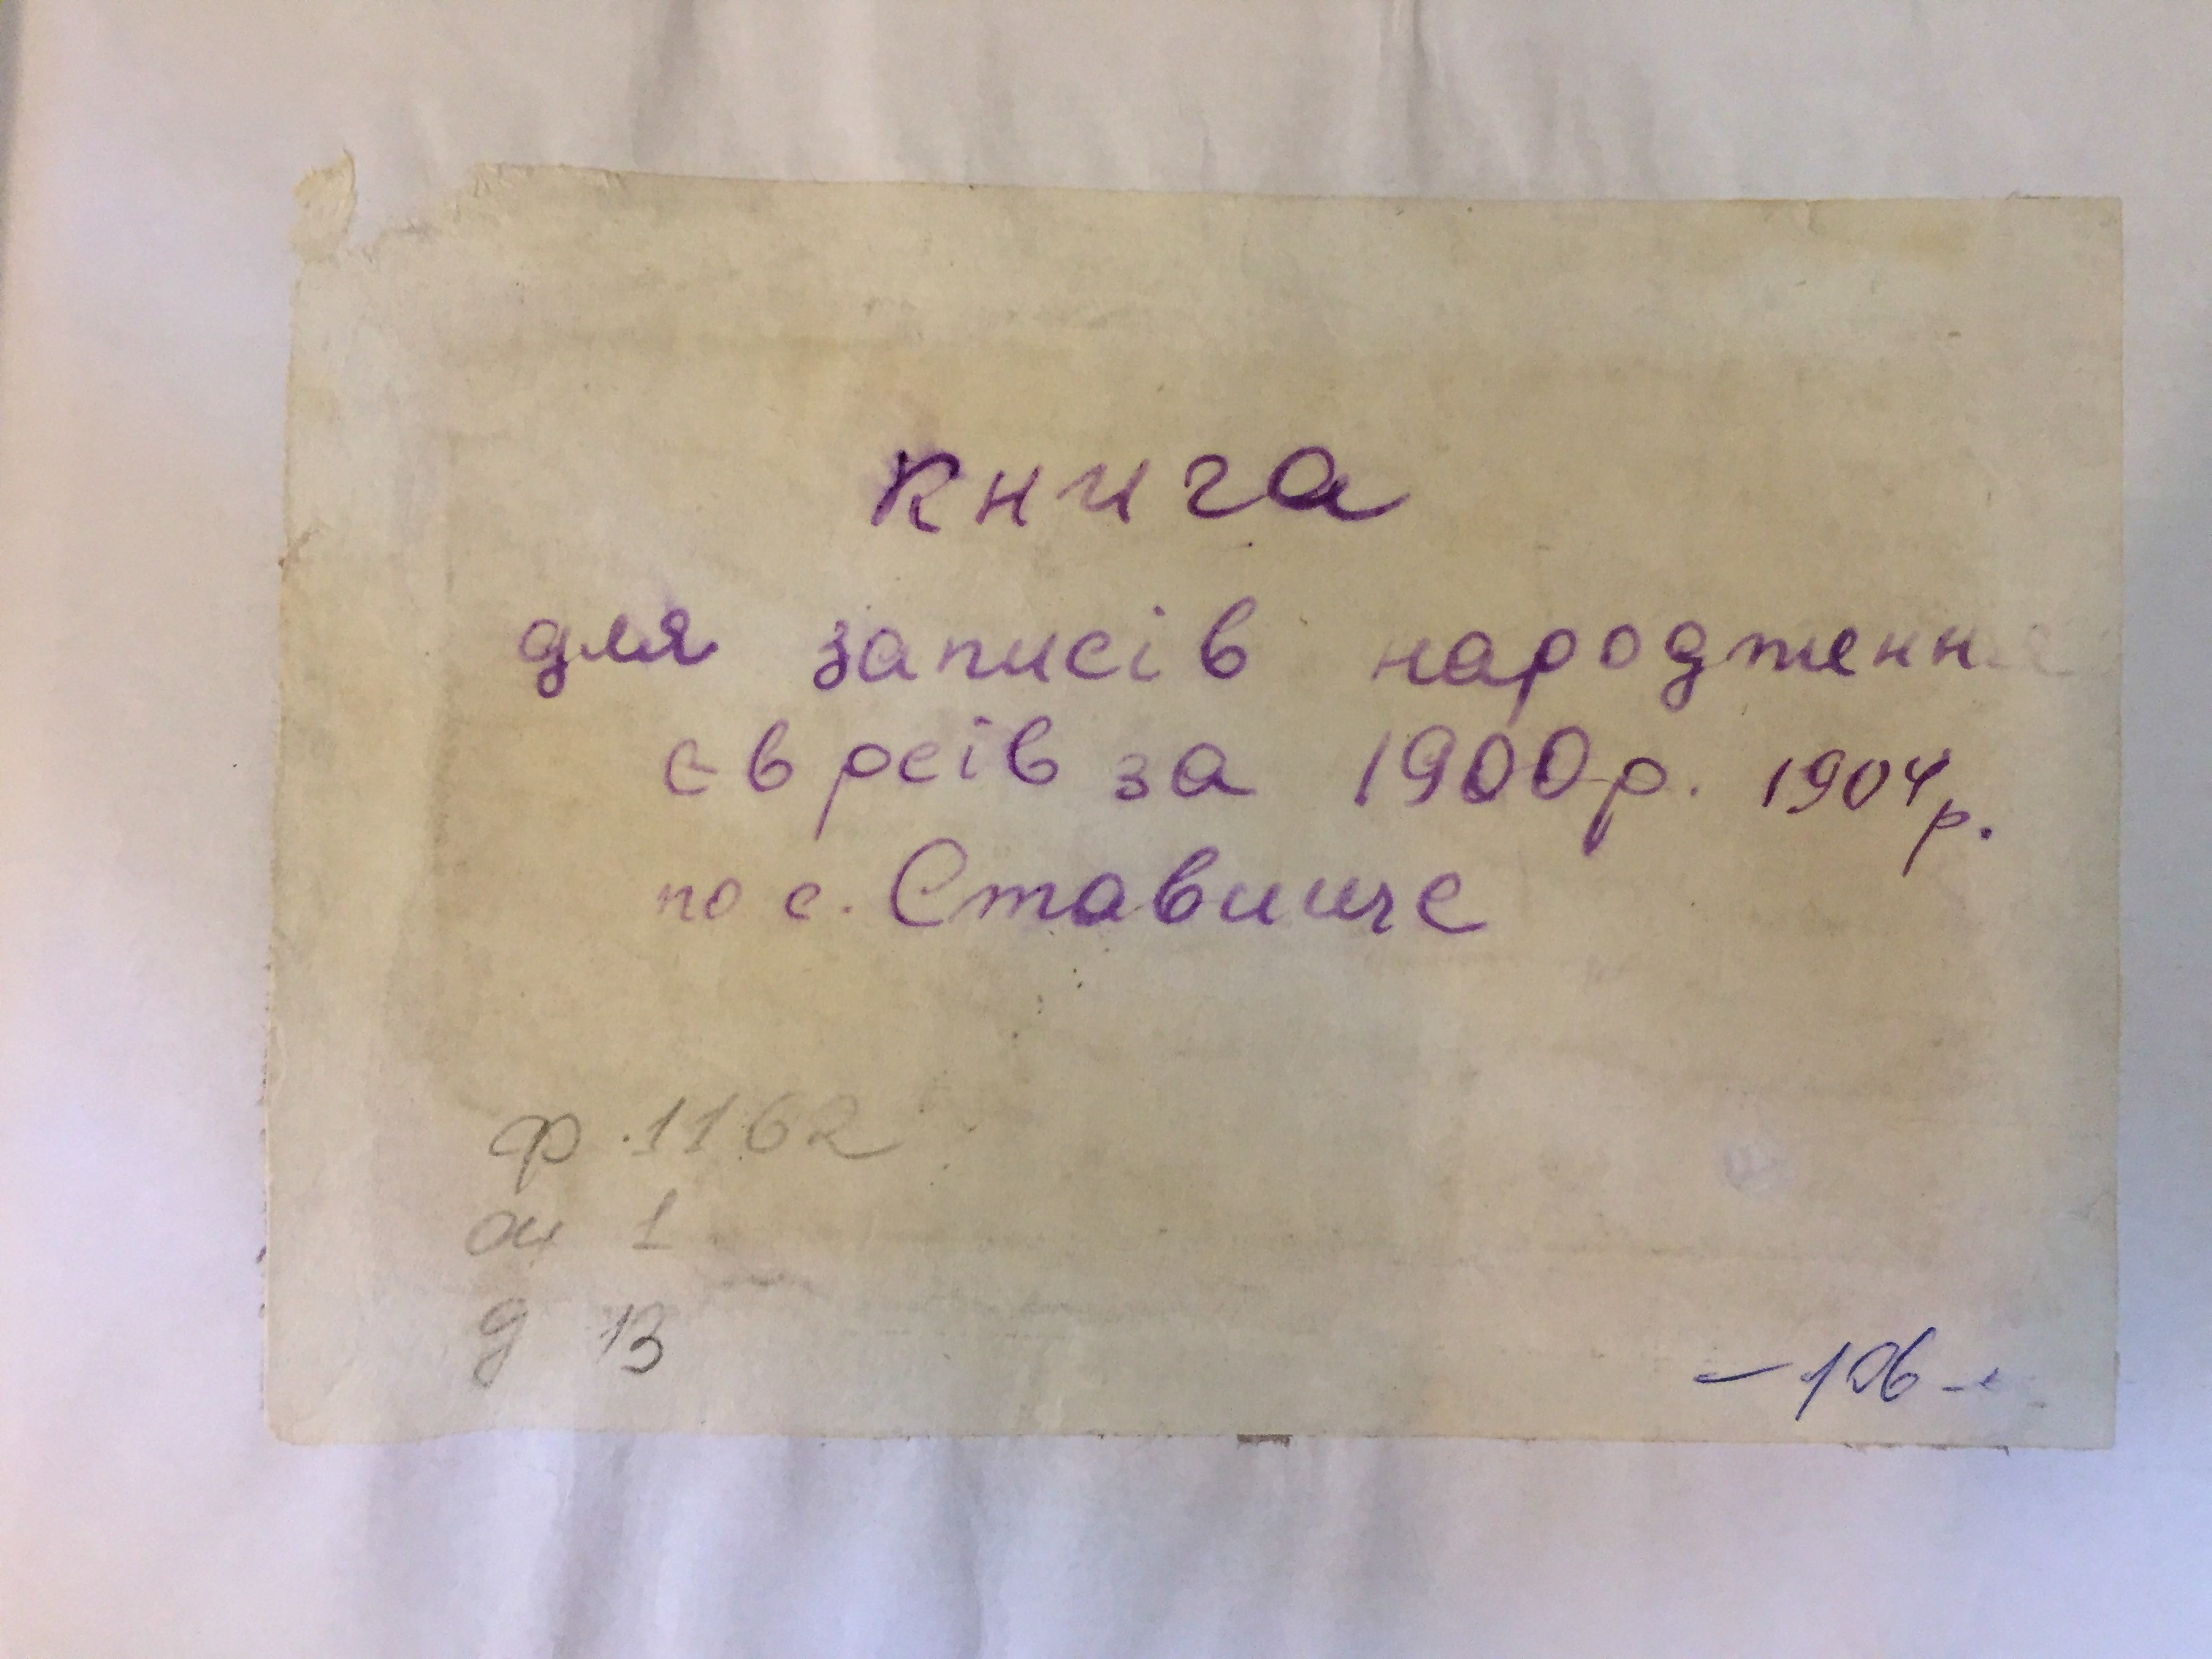 книга
для записів народження
євреїв за 1900р. 1904р.
по с. Ставище
ф. 1162
оп 1
д 13
– 106 –